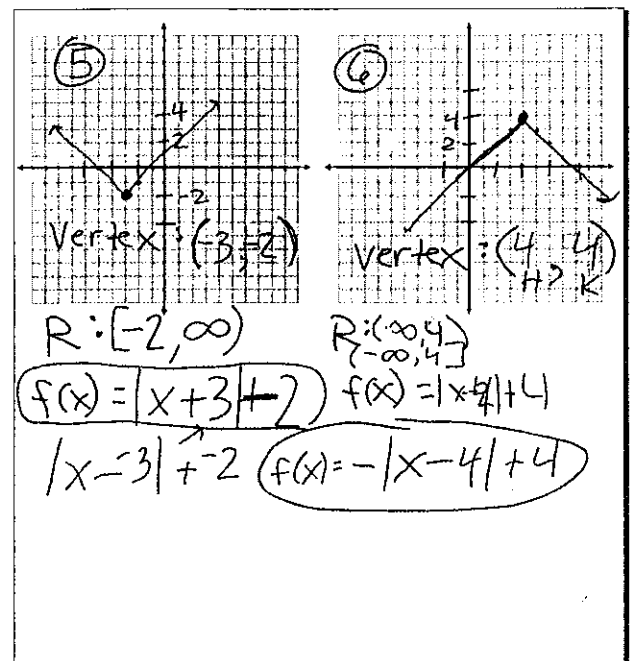 ⑤
4
2
-2
Vertex : (-3, -2)
R : [-2, ∞)
f(x) = |x+3| - 2
|x - -3| + -2
⑥
4
2
Vertex : (4, 4)
H, K
R : (∞, 4)
(-∞, 4]
f(x) = -|x-4| + 4